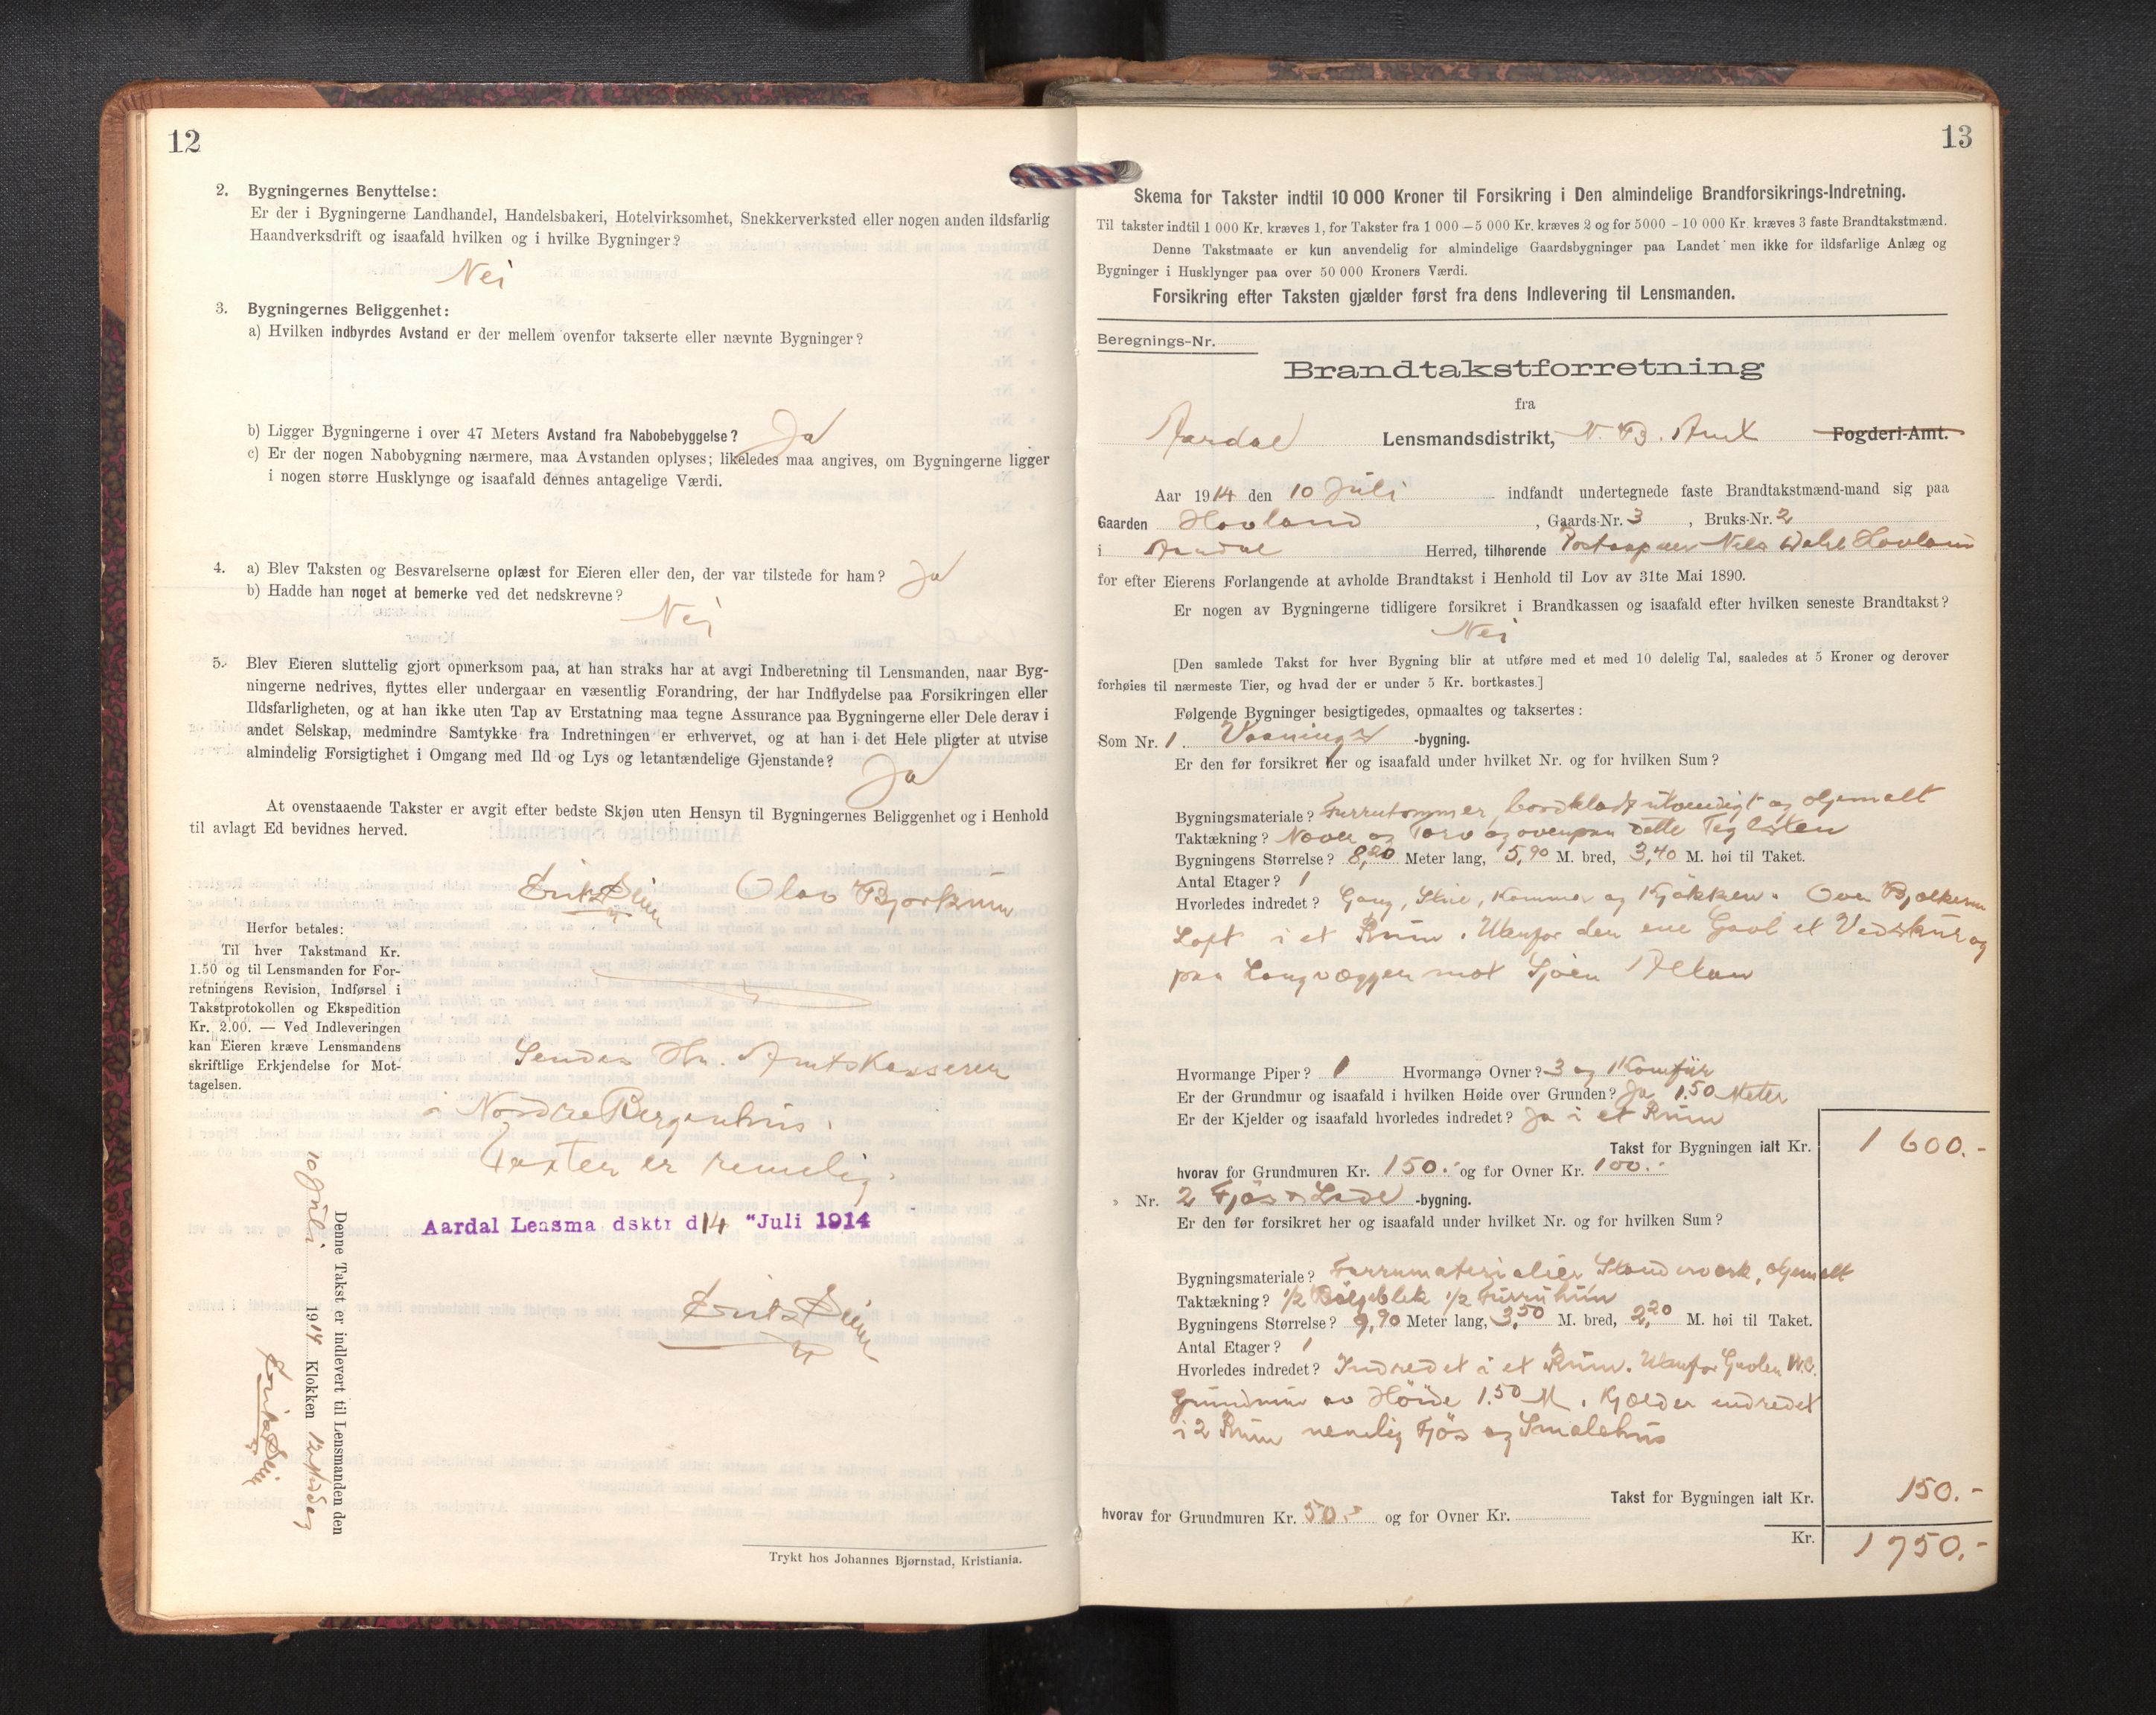 12
2. Bygningernes Benyttelse:
Er der i Bygningerne Landhandel, Handelsbakeri, Hotelvirksomhet, Snekkerverksted eller nogen anden ildsfarlig
Haandverksdrift og isaafald hvilken og i hvilke Bygninger?
Nei
3. Bygningernes Beliggenhet:
a) Hvilken indbyrdes Avstand er der mellem ovenfor takserte eller nævnte Bygninger?
b) Ligger Bygningerne i over 47 Meters Avstand fra Nabobebyggelse? Ja
c) Er der nogen Nabobygning nærmere, maa Avstanden oplyses; likeledes maa angives, om Bygningerne ligger
i nogen større Husklynge og isaafald dennes antagelige Værdi.
4. a) Blev Taksten og Besvarelserne oplæst for Eieren eller den, der var tilstede for ham? Ja
b) Hadde han noget at bemerke ved det nedskrevne?
Nei
5. Blev Eieren sluttelig gjort opmerksom paa, at han straks har at avgi Indberetning til Lensmanden, naar Byg-
ningerne nedrives, flyttes eller undergaar en væsentlig Forandring, der har Indflydelse paa Forsikringen eller
Ildsfarligheten, og at han ikke uten Tap av Erstatning maa tegne Assurance paa Bygningerne eller Dele derav i
andet Selskap, medmindre Samtykke fra Indretningen er erhvervet, og at han i det Hele pligter at utvise
almindelig Forsigtighet i Omgang med Ild og Lys og letantændelige Gjenstande?
Ja
At ovenstaaende Takster er avgit efter bedste Skjøn uten Hensyn til Bygningernes Beliggenhet og i Henhold
til avlagt Ed bevidnes herved.
Olav Bjørkum
Herfor betales:
Til hver Takstmand Kr.
1.50 og til Lensmanden for For-
retningens Revision, Indførsel i
Takstprotokollen og Ekspedition
Kr. 2.00. — Ved Indleveringen
kan Eieren kræve Lensmandens
skriftlige Erkjendelse for Mot-
tagelsen.
Sendes Hr. Amtskasserer
i Nordre Bergenhus.
Taxten er rimelig.
Aardal Lensma dsktr d 14 "Juli 1914
Denne Takst er indlevert til Lensmanden den
10 Juli 1914 Klokken 12 Middag
Trykt hos Johannes Bjørnstad, Kristiania.
13
Skema for Takster indtil 10 000 Kroner til Forsikring i Den almindelige Brandforsikrings-Indretning.
Til takster indtil 1 000 Kr. kræves 1, for Takster fra 1 000—5 000 Kr. kræves 2 og for 5000 - 10 000 Kr kræves 3 faste Brandtakstmænd.
Denne Takstmaate er kun anvendelig for almindelige Gaardsbygninger paa Landet men ikke for ildsfarlige Anlæg og
Bygninger i Husklynger paa over 50 000 Kroners Værdi.
Forsikring efter Taksten gjælder først fra dens Indlevering til Lensmanden.
Beregnings-Nr.
Brandtakstforretning
fra
Aardal Lensmandsdistrikt, N. B. Amt Fogderi-Amt.
Aar 1914 den 10 Juli indfandt undertegnede faste Brandtakstmænd-mand sig paa
Gaarden Hovland, Gaards-Nr. 3, Bruks-Nr. 2
i Aardal Herred, tilhørende Postaapner Nils Dahl Hovland
for efter Eierens Forlangende at avholde Brandtakst i Henhold til Lov av 31te Mai 1890.
Er nogen av Bygningerne tidligere forsikret i Brandkassen og isaafald efter hvilken seneste Brandtakst?
Nei
[Den samlede Takst for hver Bygning blir at utføre med et med 10 delelig Tal, saaledes at 5 Kroner og derover
forhøies til nærmeste Tier, og hvad der er under 5 Kr. bortkastes.]
Følgende Bygninger besigtigedes, opmaaltes og taksertes:
Som Nr. 1. Vaanings -bygning.
Er den før forsikret her og isaafald under hvilket Nr. og for hvilken Sum?
Bygningsmateriale? Furrutømmer, bordklædt utvendigt og oljemalt
Taktækning? Næver og Torv og ovenpaa dette Teglsten
Bygningens Størrelse? 8,20 Meter lang, 5,90 M. bred, 3,40 M. høi til Taket.
Antal Etager? 1
Hvorledes indredet? Gang, Stue, Kammer og Kjøkken. Over Bjelkerne
Loft i et Rum. Utenfor den ene Gavl et Vedskur og
paa Langvæggen mot Sjøen Altan
Hvormange Piper? 1 Hvormange Ovner? 3 og 1 Komfür
Er der Grundmur og isaafald i hvilken Høide over Grunden? Ja 1.50 Meter
Er der Kjelder og isaafald hvorledes indredet? Ja i et Rum
Takst for Bygningen ialt Kr. 1 600.-
hvorav for Grundmuren Kr. 150.- og for Ovner Kr. 100.-
" Nr. 2 Fjøs & Lade -bygning.
Er den før forsikret her og isaafald under hvilket Nr. og for hvilken Sum?
Bygningsmateriale? Furrumaterialier Standverk, oljemalt
Taktækning? 1/2 Bølgeblik 1/2
Bygningens Størrelse? 9,90 Meter lang, 3,50 M. bred, 2,20 M. høi til Taket.
Antal Etager? 1
Hvorledes indredet? Indredet i et Rum. Utenfor Gavlen W.C.
Grundmur av Høide 1.50 M. Kjælder indredet
i 2 Rum nemlig Fjøs og Smalehus
Takst for Bygningen ialt Kr. 150.-
hvorav for Grundmuren Kr. 50.- og for Ovner Kr.
Kr. 1 750.-